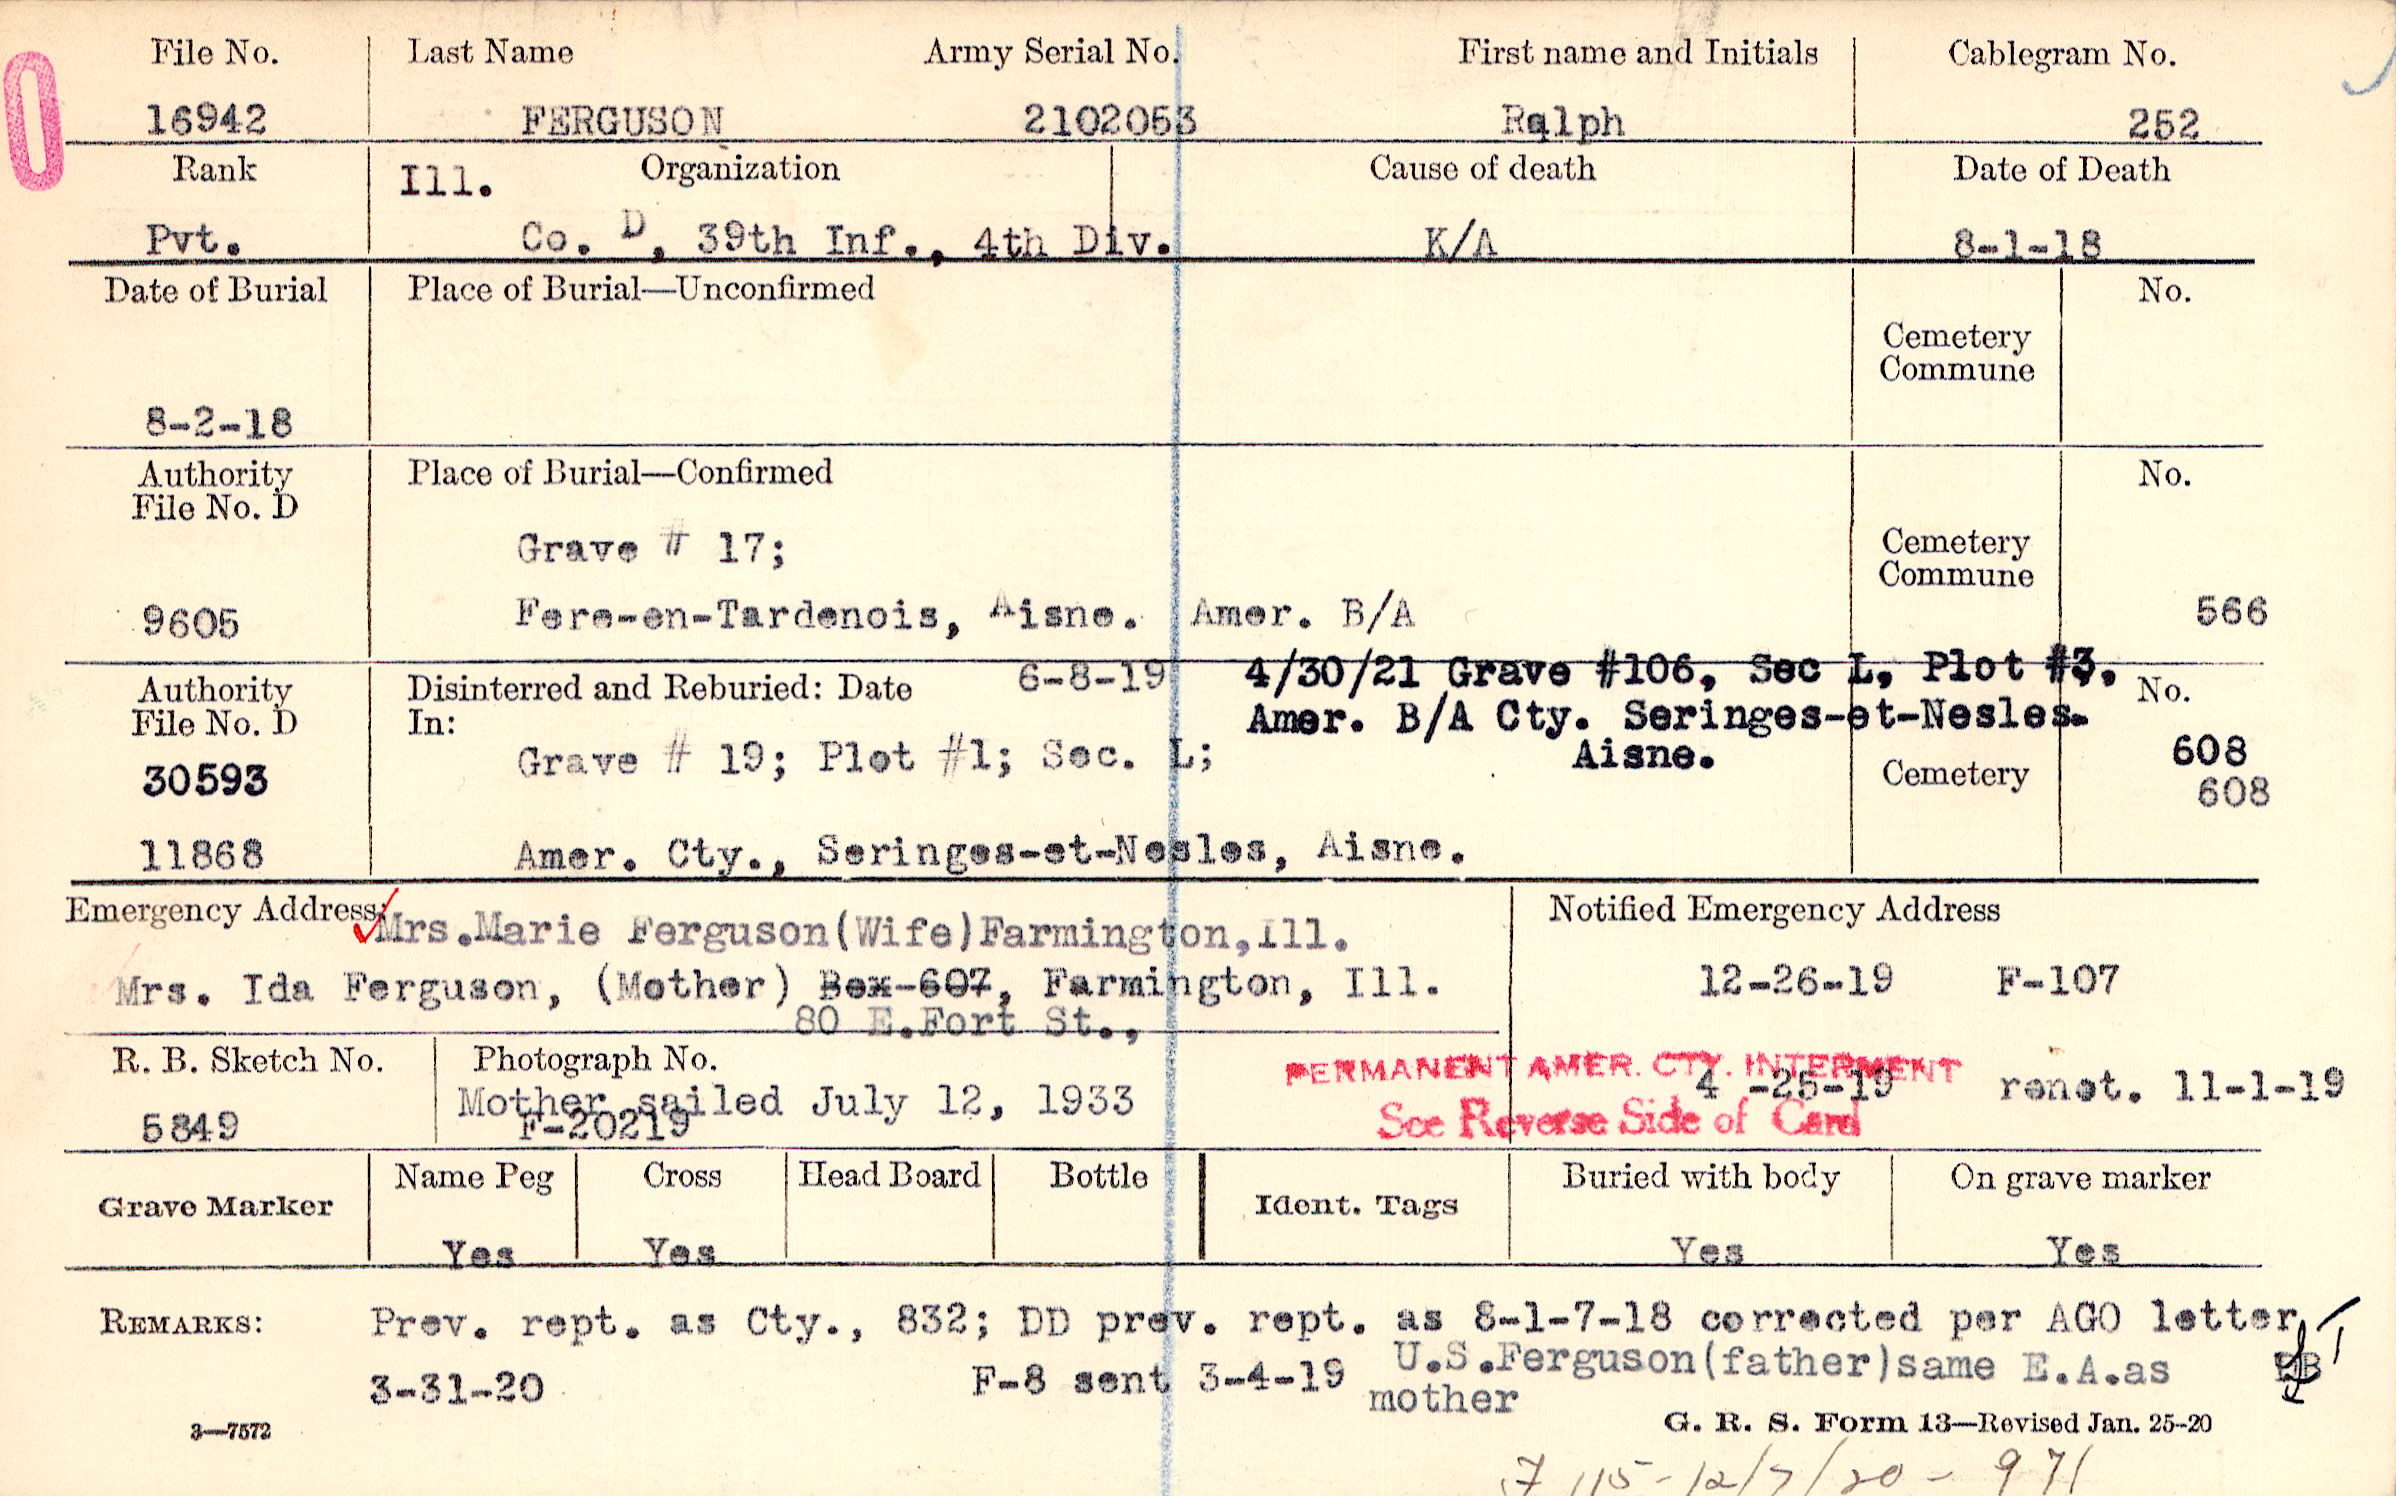 File No. Last Name Army Serial No. First name and Initials Cablegram No.
16942 FERGUSON 2102053 Ralph 252
Rank Ill. Organization Cause of death Date of Death
Pvt. Co. D, 39th Inf., 4th Div. K/A 8-1-18
Date of Burial Place of Burial—Unconfirmed No.
Cemetery
Commune
8-2-18
Authority Place of Burial—Confirmed No.
File No. D
Grave # 17; Cemetery
Commune
9605 Fere-en-Tardenois, Aisne. Amer. B/A 566
Authority Disinterred and Reburied: Date 6-8-19 4/30/21 Grave #106, Sec L, Plot #3, No.
File No. D In: Amer. B/A Cty. Seringes-et-Nesles-
30593 Grave # 19; Plot #1; Sec. L; Aisne. Cemetery 608
608
11868 Amer. Cty., Seringes-et-Nesles, Aisne.
Emergency Address: Mrs.Marie Ferguson(Wife)Farmington,Ill. Notified Emergency Address
Mrs. Ida Ferguson, (Mother) Box-607, Farmington, Ill. 12-26-19 F-107
80 E.Fort St.,
R. B. Sketch No. Photograph No. PERMANENT AMER. CTY. INTERMENT
Mother sailed July 12, 1933 4 -25-19 renot. 11-1-19
5849 F-20219 See Reverse Side of Card
Grave Marker Name Peg Cross Head Board Bottle Ident. Tags Buried with body On grave marker
Yes Yes Yes Yes
REMARKS: Prev. rept. as Cty., 832; DD prev. rept. as 8-1-7-18 corrected per AGO letter
3-31-20 F-8 sent 3-4-19 U.S.Ferguson(father)same E.A.as
mother
3—7572 G. R. S. Form 13—Revised Jan. 25-20
7 115-12/7/20-971